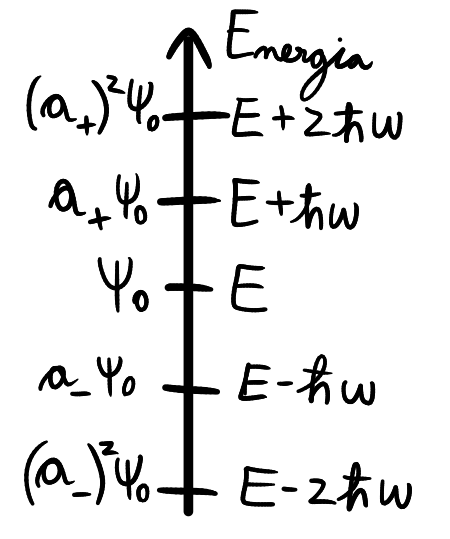 Energia
(a₊)²ψ₀ E+2ħω
a₊ψ₀ E+ħω
ψ₀ E
a₋ψ₀ E-ħω
(a₋)²ψ₀ E-2ħω